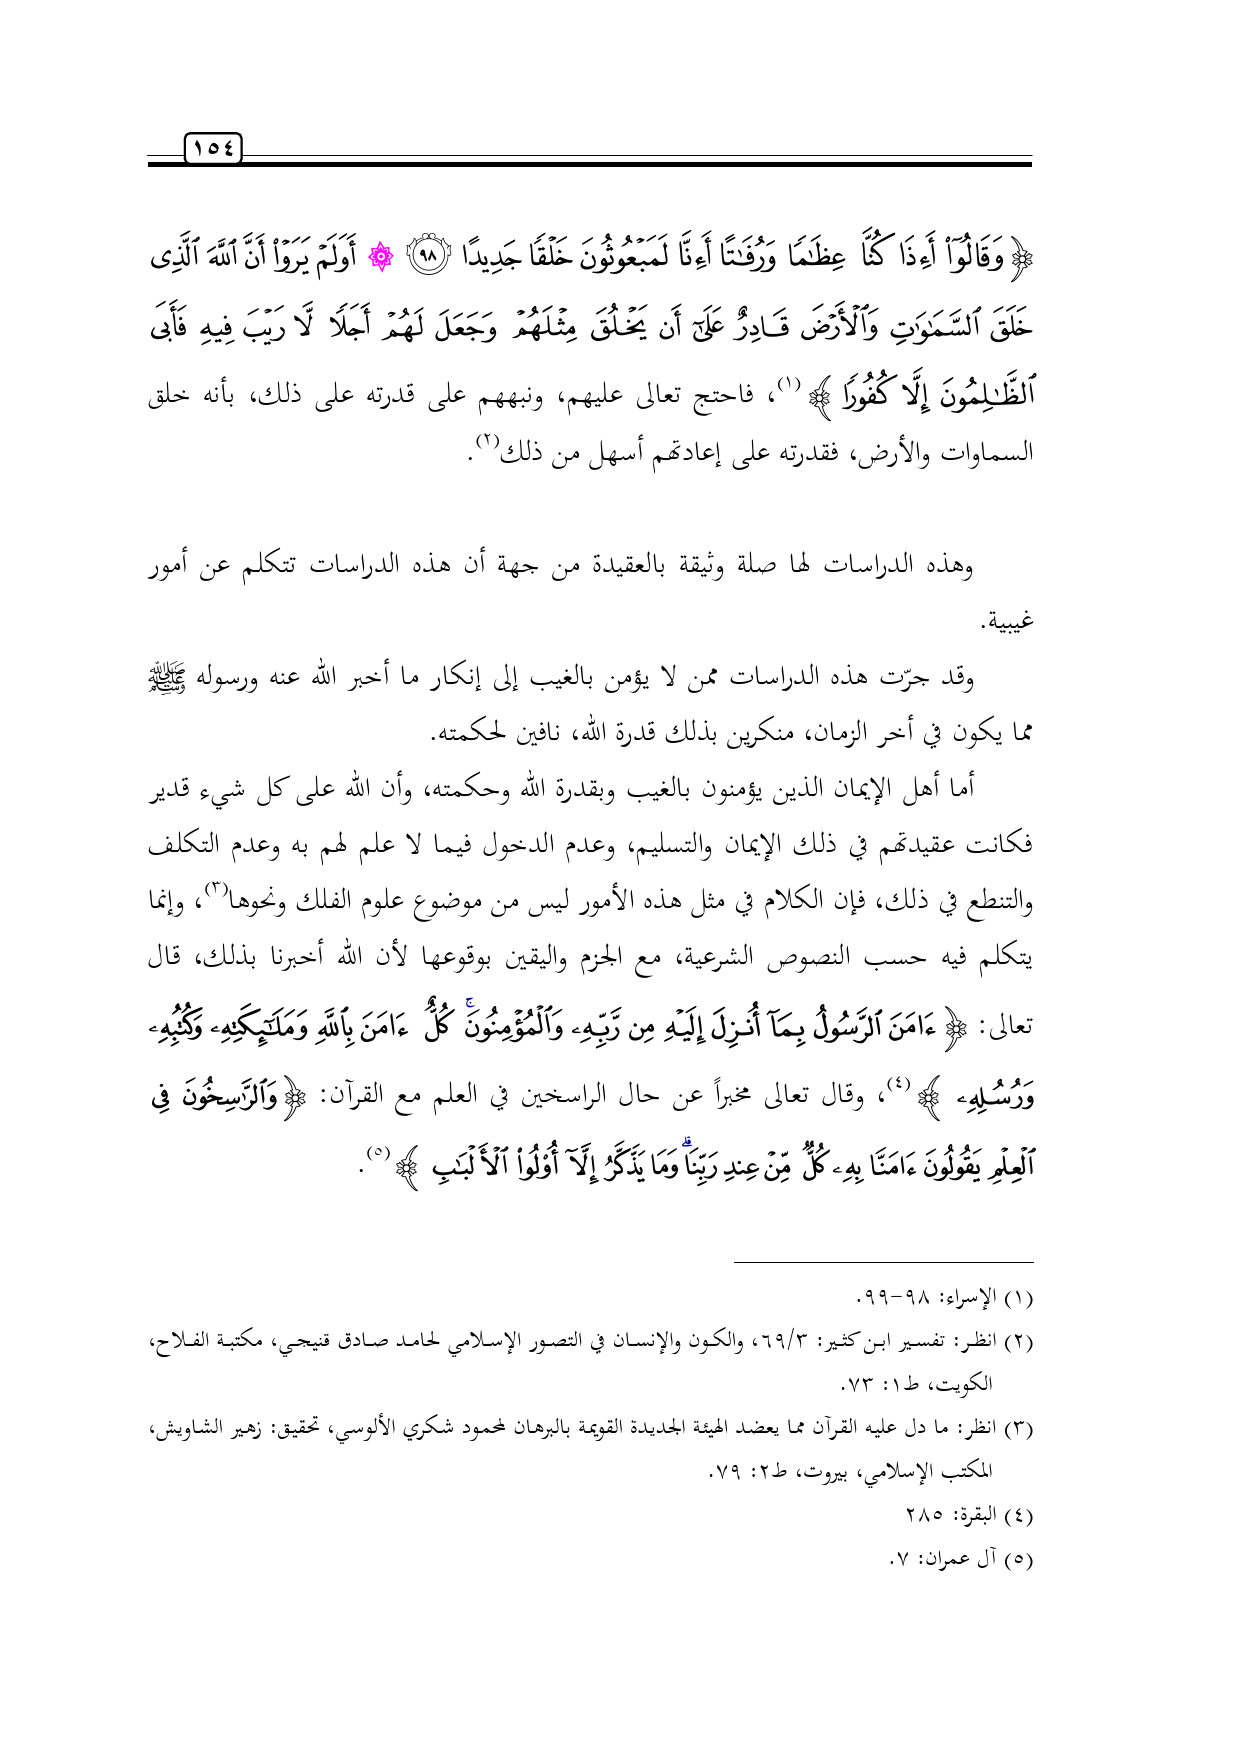 ١٥٤
﴿ وَقَالُوٓا۟ أَءِذَا كُنَّا عِظَـٰمًا وَرُفَـٰتًا أَءِنَّا لَمَبْعُوثُونَ خَلْقًا جَدِيدًا ٩٨ ۞ أَوَلَمْ يَرَوْا۟ أَنَّ ٱللَّهَ ٱلَّذِى
خَلَقَ ٱلسَّمَـٰوَٰتِ وَٱلْأَرْضَ قَادِرٌ عَلَىٰٓ أَن يَخْلُقَ مِثْلَهُمْ وَجَعَلَ لَهُمْ أَجَلًا لَّا رَيْبَ فِيهِ فَأَبَى
ٱلظَّـٰلِمُونَ إِلَّا كُفُورًا ﴾(١)، فاحتج تعالى عليهم، ونبههم على قدرته على ذلك، بأنه خلق
السماوات والأرض، فقدرته على إعادتهم أسهل من ذلك(٢).
وهذه الدراسات لها صلة وثيقة بالعقيدة من جهة أن هذه الدراسات تتكلم عن أمور
غيبية.
وقد جرّت هذه الدراسات ممن لا يؤمن بالغيب إلى إنكار ما أخبر الله عنه ورسوله ﷺ
مما يكون في أخر الزمان، منكرين بذلك قدرة الله، نافين لحكمته.
أما أهل الإيمان الذين يؤمنون بالغيب وبقدرة الله وحكمته، وأن الله على كل شيء قدير
فكانت عقيدتهم في ذلك الإيمان والتسليم، وعدم الدخول فيما لا علم لهم به وعدم التكلف
والتنطع في ذلك، فإن الكلام في مثل هذه الأمور ليس من موضوع علوم الفلك ونحوها(٣)، وإنما
يتكلم فيه حسب النصوص الشرعية، مع الجزم واليقين بوقوعها لأن الله أخبرنا بذلك، قال
تعالى: ﴿ ءَامَنَ ٱلرَّسُولُ بِمَآ أُنزِلَ إِلَيْهِ مِن رَّبِّهِۦ وَٱلْمُؤْمِنُونَ ۚ كُلٌّ ءَامَنَ بِٱللَّهِ وَمَلَـٰٓئِكَتِهِۦ وَكُتُبِهِۦ
وَرُسُلِهِۦ ﴾(٤)، وقال تعالى مخبراً عن حال الراسخين في العلم مع القرآن: ﴿ وَٱلرَّٰسِخُونَ فِى
ٱلْعِلْمِ يَقُولُونَ ءَامَنَّا بِهِۦ كُلٌّ مِّنْ عِندِ رَبِّنَا ۗ وَمَا يَذَّكَّرُ إِلَّآ أُو۟لُوا۟ ٱلْأَلْبَـٰبِ ﴾(٥).
(١) الإسراء: ٩٨-٩٩.
(٢) انظر: تفسير ابن كثير: ٦٩/٣، والكون والإنسان في التصور الإسلامي لحامد صادق قنيجي، مكتبة الفلاح،
الكويت، ط١: ٧٣.
(٣) انظر: ما دل عليه القرآن مما يعضد الهيئة الجديدة القويمة بالبرهان لمحمود شكري الألوسي، تحقيق: زهير الشاويش،
المكتب الإسلامي، بيروت، ط٢: ٧٩.
(٤) البقرة: ٢٨٥
(٥) آل عمران: ٧.